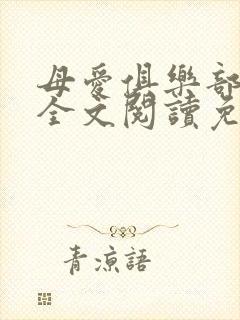 母愛俱樂部
全文閱讀免
青涼語